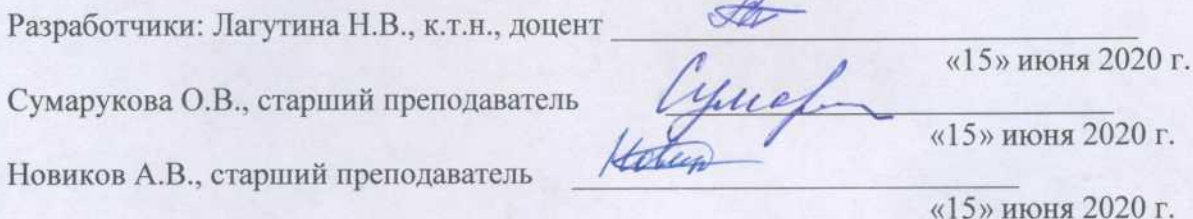 Разработчики: Лагутина Н.В., к.т.н., доцент
«15» июня 2020 г.
Сумарукова О.В., старший преподаватель
«15» июня 2020 г.
Новиков А.В., старший преподаватель
«15» июня 2020 г.